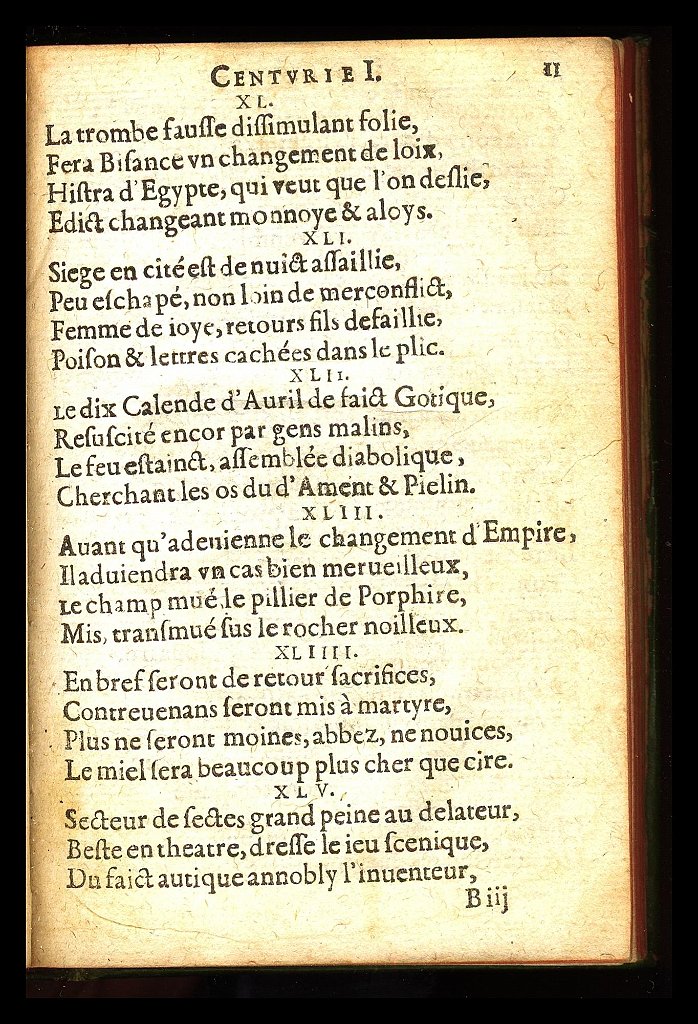 CENTVRIE I. 11
XL.
La trombe fauſſe diſſimulant folie,
Fera Biſance vn changement de loix,
Hiſtra d'Egypte, qui veut que l'on deſlie,
Edict changeant monnoye & aloys.
XLI.
Siege en cité eſt de nuict aſſaillie,
Peu eſchapé, non loin de mer conflict,
Femme de ioye, retours fils defaillie,
Poiſon & lettres cachées dans le plic.
XLII.
Le dix Calende d'Auril de faict Gotique,
Reſuſcité encor par gens malins,
Le feu eſtainct, aſſemblée diabolique,
Cherchant les os du d'Ament & Pſelin.
XLIII.
Auant qu'aduienne le changement d'Empire,
Il aduiendra vn cas bien merueilleux,
Le champ mué, le pillier de Porphire,
Mis, tranſmué ſus le rocher noilleux.
XLIIII.
En bref ſeront de retour ſacrifices,
Contreuenans ſeront mis à martyre,
Plus ne ſeront moines, abbez, ne nouices,
Le miel ſera beaucoup plus cher que cire.
XLV.
Secteur de ſectes grand peine au delateur,
Beſte en theatre, dreſſe le ieu ſcenique,
Du faict autique annobly l'inuenteur,
B iij